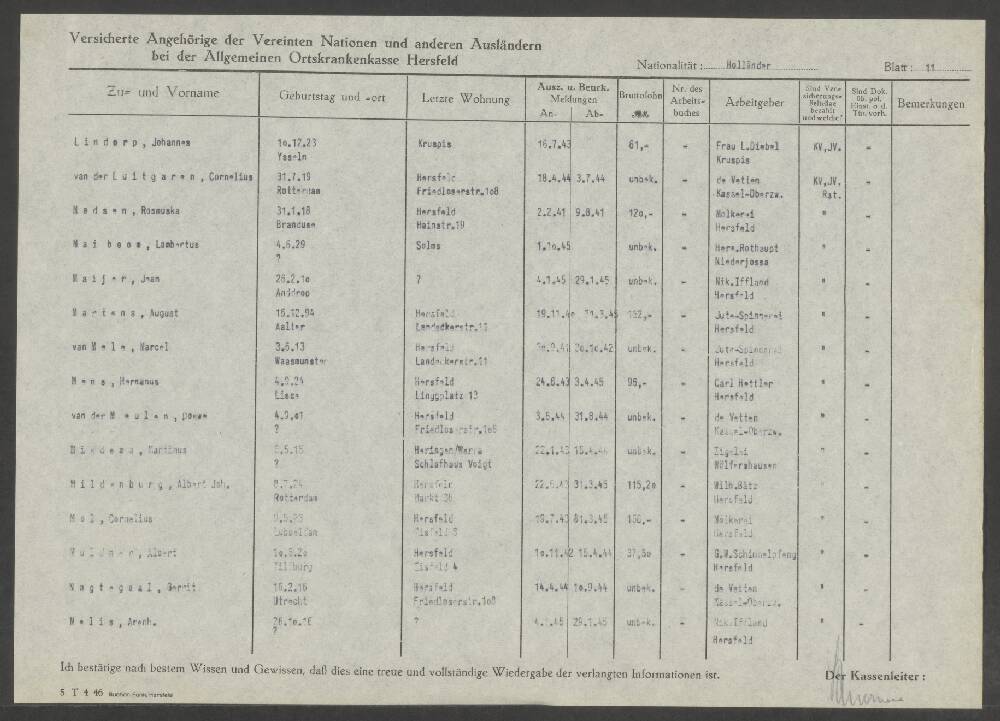 Versicherte Angehörige der Vereinten Nationen und anderen Ausländern
bei der Allgemeinen Ortskrankenkasse Hersfeld
Nationalität: Holländer Blatt: 11
Zu- und Vorname Geburtstag und -ort Letzte Wohnung Ausz. u. Beurk. Meldungen An- Ab- Bruttolohn Nr. des Arbeits-buches Arbeitgeber Sind Versicherungs-Beiträge bezahlt und welche? Sind Dok. üb. pol. Einst. o. d. Tät. vorh. Bemerkungen
Lindorp, Johannes 10.12.23 Kruspis 16.7.43 61,- - Frau L.Diebel KV,JV. -
Ysseln Kruspis
van der Luitgaren, Cornelius 31.7.19 Hersfeld 18.4.44 3.7.44 unbek. - de Vetten KV,JV. -
Rotterdam Friedloserstr.108 Kassel-Oberzw. Rst.
Madsen, Rosmuska 31.1.18 Hersfeld 2.2.41 9.8.41 120,- - Molkerei " -
Brandusa Hainstr.19 Hersfeld
Maiboom, Lambertus 4.6.29 Solms 1.10.45 unbek. - Herm.Rothaupt " -
? Niederjossa
Maijer, Jean 26.2.10 ? 4.1.45 29.1.45 unbek. - Nik.Iffland " -
Hersfeld
Martens, August 16.12.94 Hersfeld 19.11.40 31.3.45 132,- - Jute-Spinnerei " -
Aalter Landeckerstr.11 Hersfeld
van Mele, Marcel 3.6.13 Hersfeld 20.10.42 unbek. - Jute-Spinnerei " -
Waasmunster Landeckerstr.11 Hersfeld
Mens, Hermanus 4.9.24 Hersfeld 24.8.43 3.4.45 96,- - Carl Hettler " -
Lisse Linggplatz 13 Hersfeld
van der Meulen, Douwe 4.9.01 Hersfeld 3.5.44 31.8.44 unbek. - de Vetten " -
? Friedloserstr.108 Kassel-Oberzw.
Martinus Heringen/Werra 22.1.43 15.4.44 unbek. - "  -
? Schlafhaus Voigt Wölfershausen
Mildenburg, Albert Joh. Hersfeld 22.6.43 31.3.45 115,20 - Wilh.Bätz " -
Rotterdam Markt Hersfeld
Mol, Cornelius Hersfeld 19.7.43 31.3.45 156,- - Molkerei " -
Eisfeld Hersfeld
Albert 10.6.20 Hersfeld 10.11.42 15.4.44 37,50 - G.W.Schimmelpfeng " -
Tilburg Eisfeld 4 Hersfeld
Nagtegaal, Gerrit 16.2.16 Hersfeld 14.4.44 10.9.44 unbek. - de Vetten " -
Utrecht Friedloserstr.108 Kassel-Oberzw.
Nelis, Arenh. 26.10.16 ? 4.1.45 29.1.45 unbek. - Nik.Iffland " -
? Hersfeld
Ich bestätige nach bestem Wissen und Gewissen, daß dies eine treue und vollständige Wiedergabe der verlangten Informationen ist. Der Kassenleiter:
5 T 4 46